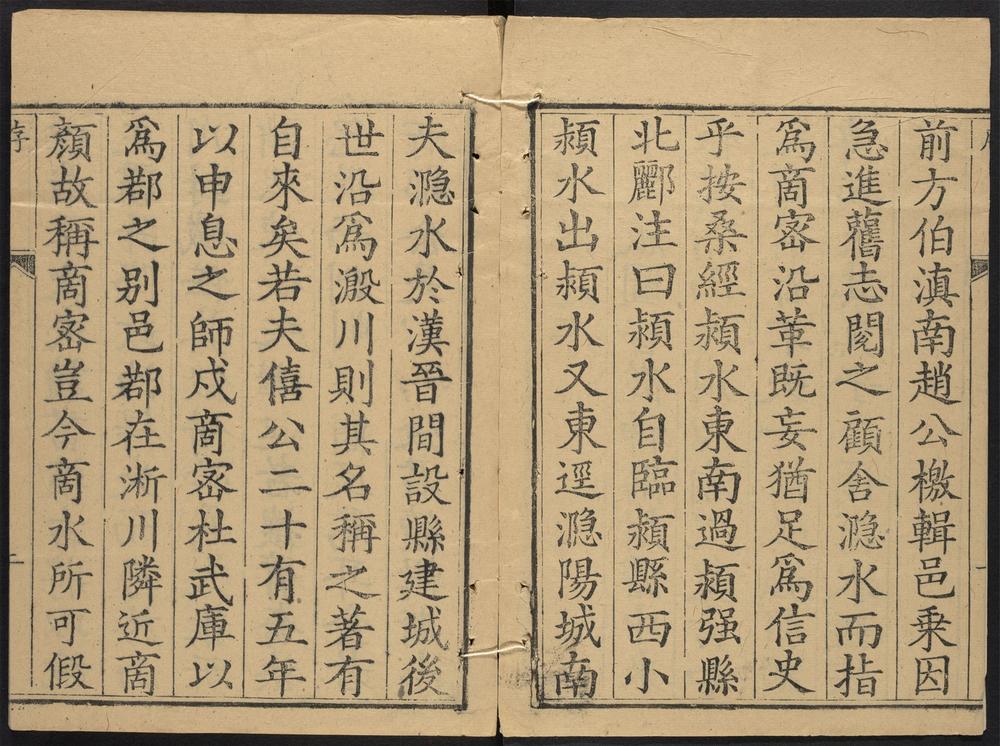 前方伯滇南趙公檄輯邑乗因
急進舊志閱之顧舍㶏水而指
爲商宻沿革既妄猶足爲信史
乎按桑經潁水東南過潁强縣
北酈注曰潁水自臨潁縣西小
潁水出潁水又東逕㶏陽城南
夫㶏水於漢晉間設縣建城後
世沿爲溵川則其名稱之著有
自來矣若夫僖公二十有五年
以申息之師戍商宻杜武庫以
爲鄀之别邑鄀在淅川隣近商
顏故稱商宻豈今商水所可假
序
二